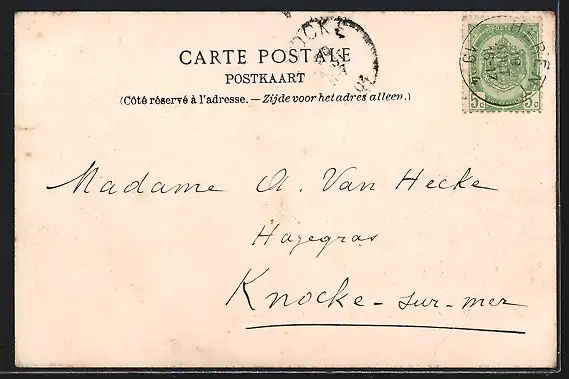 CARTE POSTALE
POSTKAART
(Côté réservé à l'adresse. — Zijde voor het adres alleen.)
Madame A. Van Hecke
Hazegras
Knocke-sur-mer
5c 5c